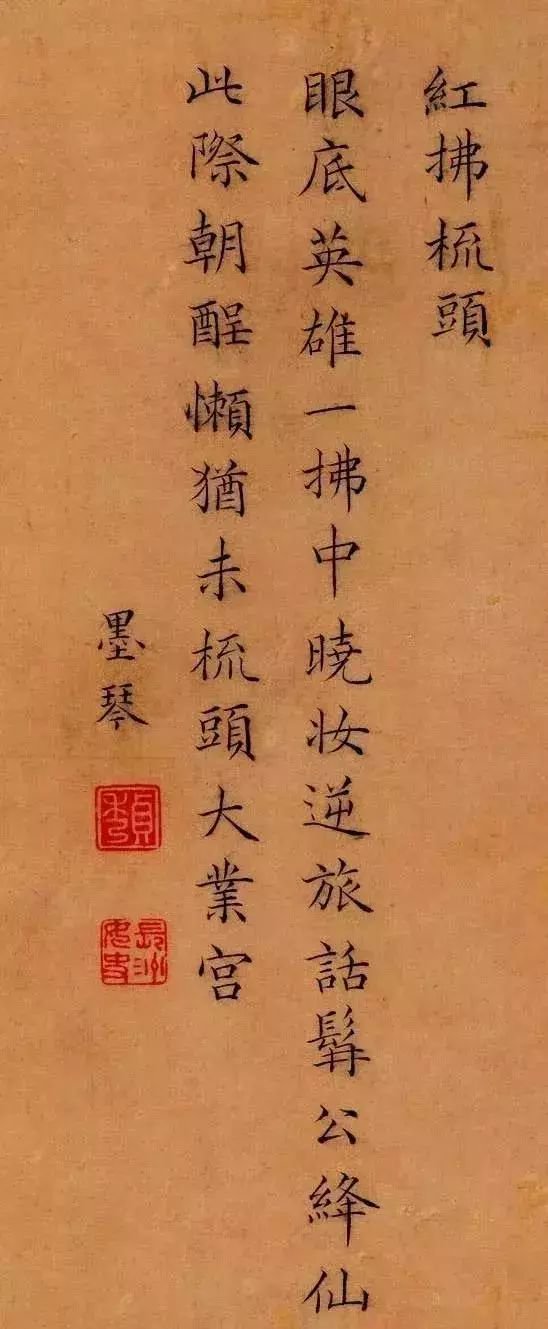 紅拂梳頭
眼底英雄一拂中曉妝逆旅話髯公絳仙
此際朝酲懶猶未梳頭大業宮
墨琴
長洲女史